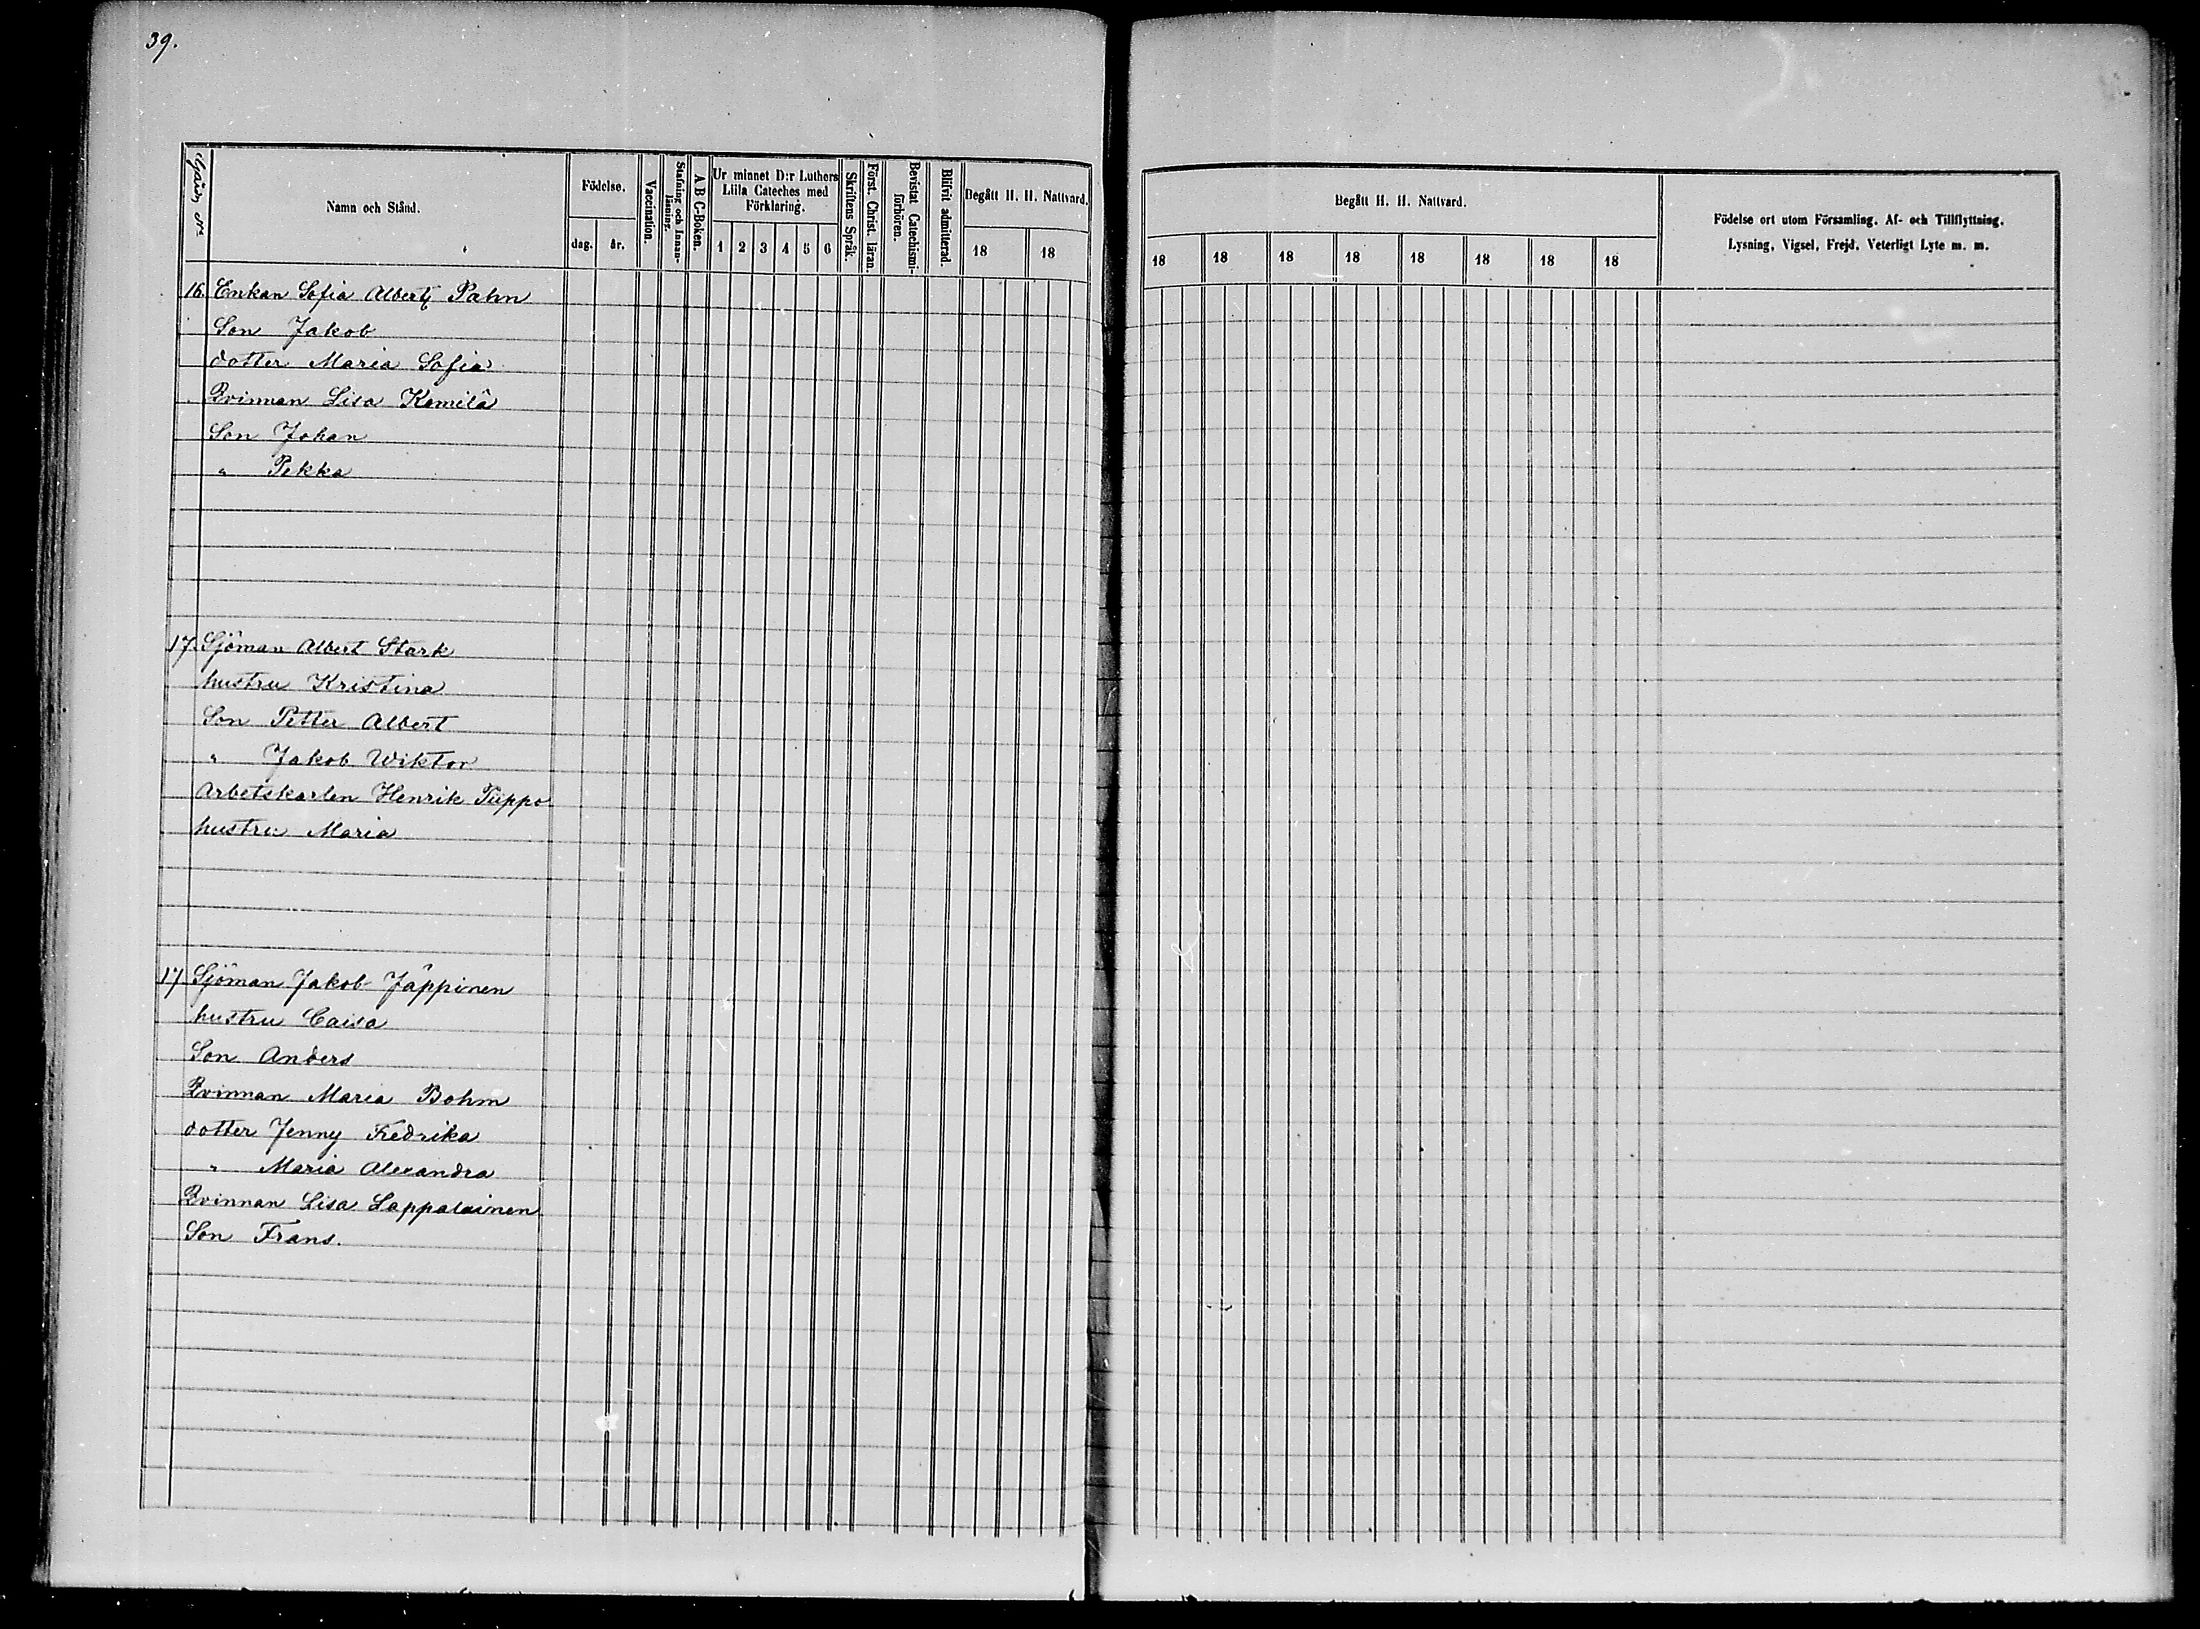 39.
Gård, No
Namn och Stånd.
Födelse.
dag.
år.
Vaccination.
Stafning och Innanläsning.
A B C-Boken.
Ur minnet D:r Luthers
Lilla Cateches med
Förklaring.
1 2 3 4 5 6
Skriftens Språk.
Först. Christ. läran.
Bevistat Catechismiförhören.
Blifvit admitterad.
Begått H. H. Nattvard.
18 18
Begått H. H. Nattvard.
18 18 18 18 18 18 18 18
Födelse ort utom Församling. Af- och Tillflyttning.
Lysning, Vigsel, Frejd, Veterligt Lyte m. m.
16. Enkan Sofia Alberti Pahn
Son Jakob
dotter Maria Sofia
Qvinnan Lisa Kemilä
Son Johan
" Pekka
17. Sjöman Albert Stark
hustru Kristina
Son Petter Albert
" Jakob Wiktor
Arbetskarlen Henrik Piippo
hustru Maria
17 Sjöman Jakob Jäppinen
hustru Caisa
Son Anders
Qvinnan Maria Bohm
dotter Jenny Fredrika
" Maria Alexandra
Qvinnan Lisa Lappalainen
Son Frans.